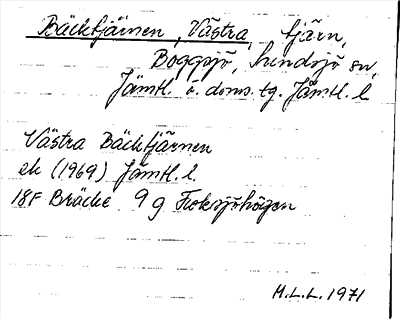 Bäcktjärnen, Västra, tjärn,
Boggsjö, Sundsjö sn,
Jämtl. ö. doms. tg. Jämtl. l
Västra Bäcktjärnen
ek (1969) Jämtl. l.
18F Bräcke 9g Fisksjöhögen
M.L.L. 1971